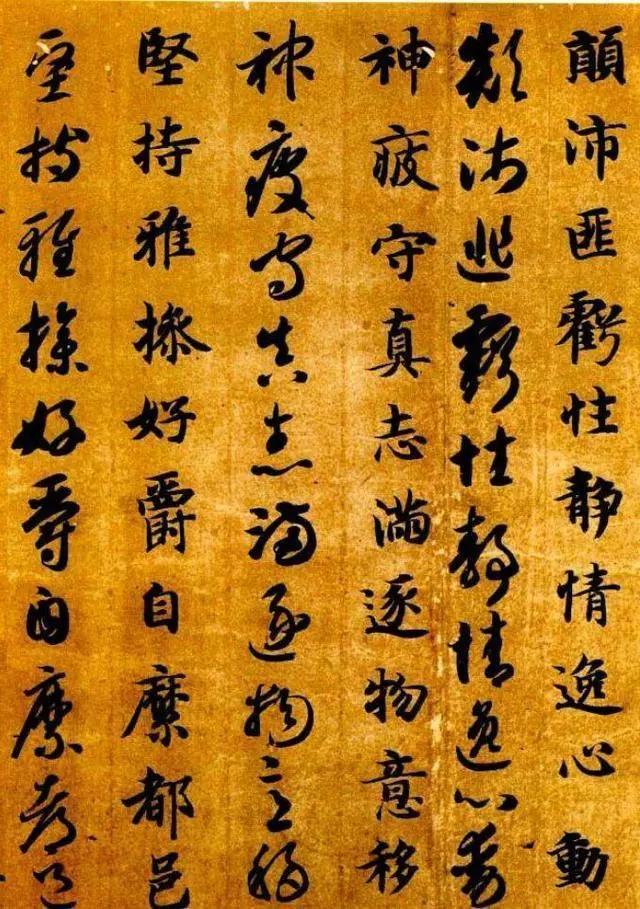 顛沛匪虧性静情逸心動
顛沛匪虧性静情逸心動
神疲守真志滿逐物意移
神疲守真志滿逐物意移
堅持雅操好爵自縻都邑
堅持雅操好爵自縻都邑